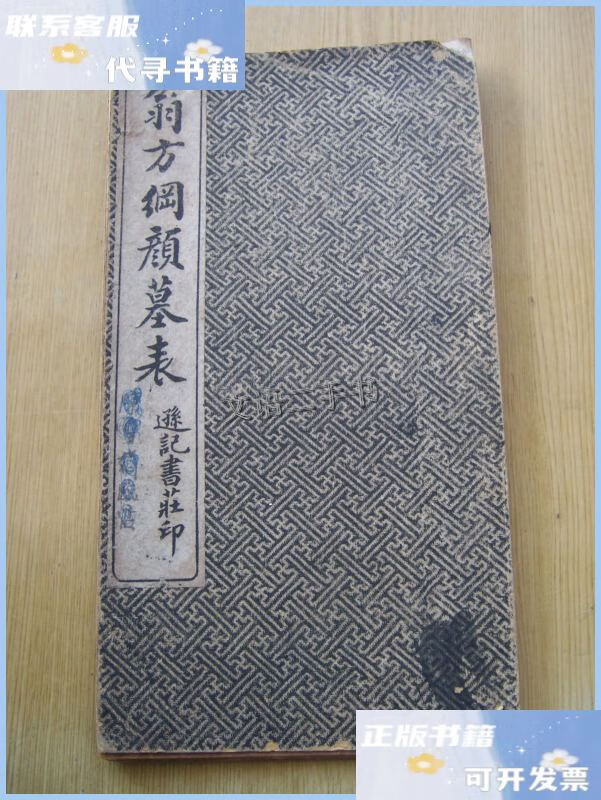 联系客服
代寻书籍
翁方綱顏墓表
遜記書莊印
文语二手书
正版书籍
可开发票